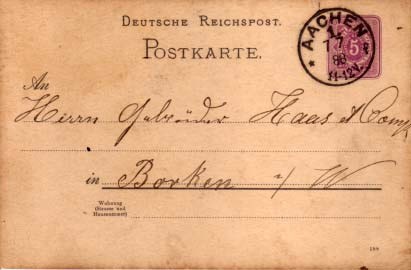 DEUTSCHE REICHSPOST.
POSTKARTE.
AACHEN
1
17
7
88
11-12V.
5
An
Herrn Gebrüder Haas & Comp
in Borken i/W
Wohnung
(Strasse und
Hausnummer)
188